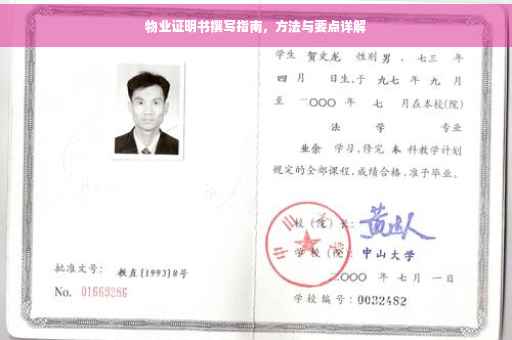 物业证明书撰写指南，方法与要点详解
学生 贺文龙 性别 男，七三 年
四 月 日生，于 九七 年 九 月
至 二〇〇〇 年 七 月在本校(院)
法 学 专业
业余 学习，修完 本 科教学计划
规定的全部课程，成绩合格，准予毕业。
校(院)长：
学校(院)：中山大学
二〇〇〇 年 七 月 一 日
学校编号：0032482
批准文号：教直[1993]8号
No. 01669286